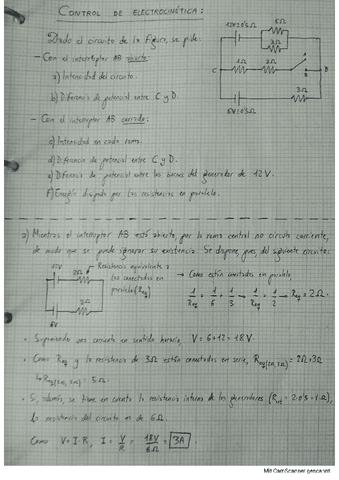 CONTROL DE ELECTROCINÉTICA:
Dado el circuito de la figura, se pide:
- Con el interruptor AB abierto:
a) Intensidad del circuito.
b) Diferencia de potencial entre C y D.
- Con el interruptor AB cerrado:
c) Intensidad en cada rama.
d) Diferencia de potencial entre C y D.
e) Diferencia de potencial entre los bornes del generador de 12V.
f) Energía disipada por las resistencias en paralelo.
12V 0'5Ω
6Ω
3Ω
C 1Ω 2Ω A B D
3Ω
6V 0'5Ω
a) Mientras el interruptor AB está abierto, por la rama central no circula corriente,
de modo que se puede ignorar su existencia. Se dispone, pues, del siguiente circuito:
12V
2Ω
3Ω
6V
Resistencia equivalente a
las conectadas en
paralelo (Req)
→ Como están conectadas en paralelo
1/Req = 1/6 + 1/3 → 1/Req = 1/2 → Req = 2Ω.
• Suponiendo una corriente en sentido horario, V = 6+12 = 18V
• Como Req y la resistencia de 3Ω están conectadas en serie, Req(2Ω,3Ω) = 2Ω+3Ω
↳ Req(2Ω,3Ω) = 5Ω.
• Si, además, se tiene en cuenta la resistencia interna de los generadores (Rint = 2·0'5 = 1Ω),
la resistencia del circuito es de 6Ω.
Como V = I·R, I = V/R = 18V/6Ω = 3A